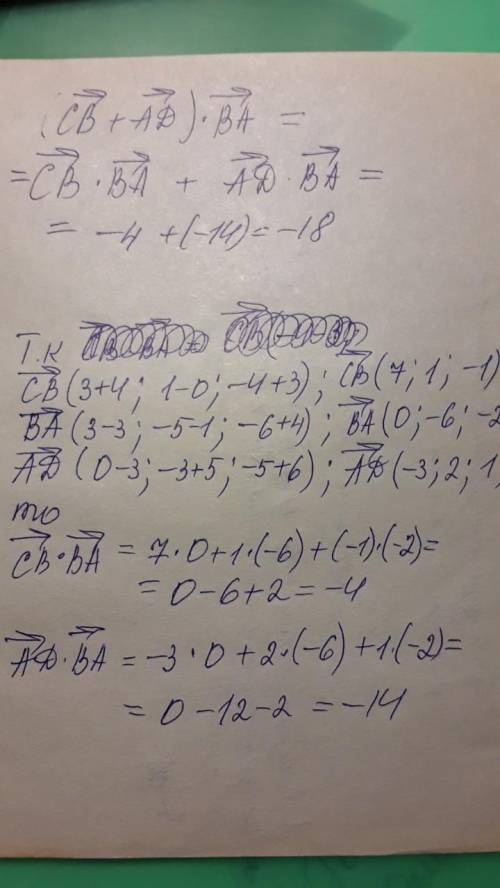 (CB + AD)·BA =
= CB·BA + AD·BA =
= -4 + (-14) = -18
Т.к
CB (3+4; 1-0; -4+3); CB (7; 1; -1)
BA (3-3; -5-1; -6+4); BA (0; -6; -2
AD (0-3; -3+5; -5+6); AD (-3; 2; 1
то
CB·BA = 7·0+1·(-6)+(-1)·(-2)=
= 0-6+2 = -4
AD·BA = -3·0+2·(-6)+1·(-2)=
= 0-12-2 = -14